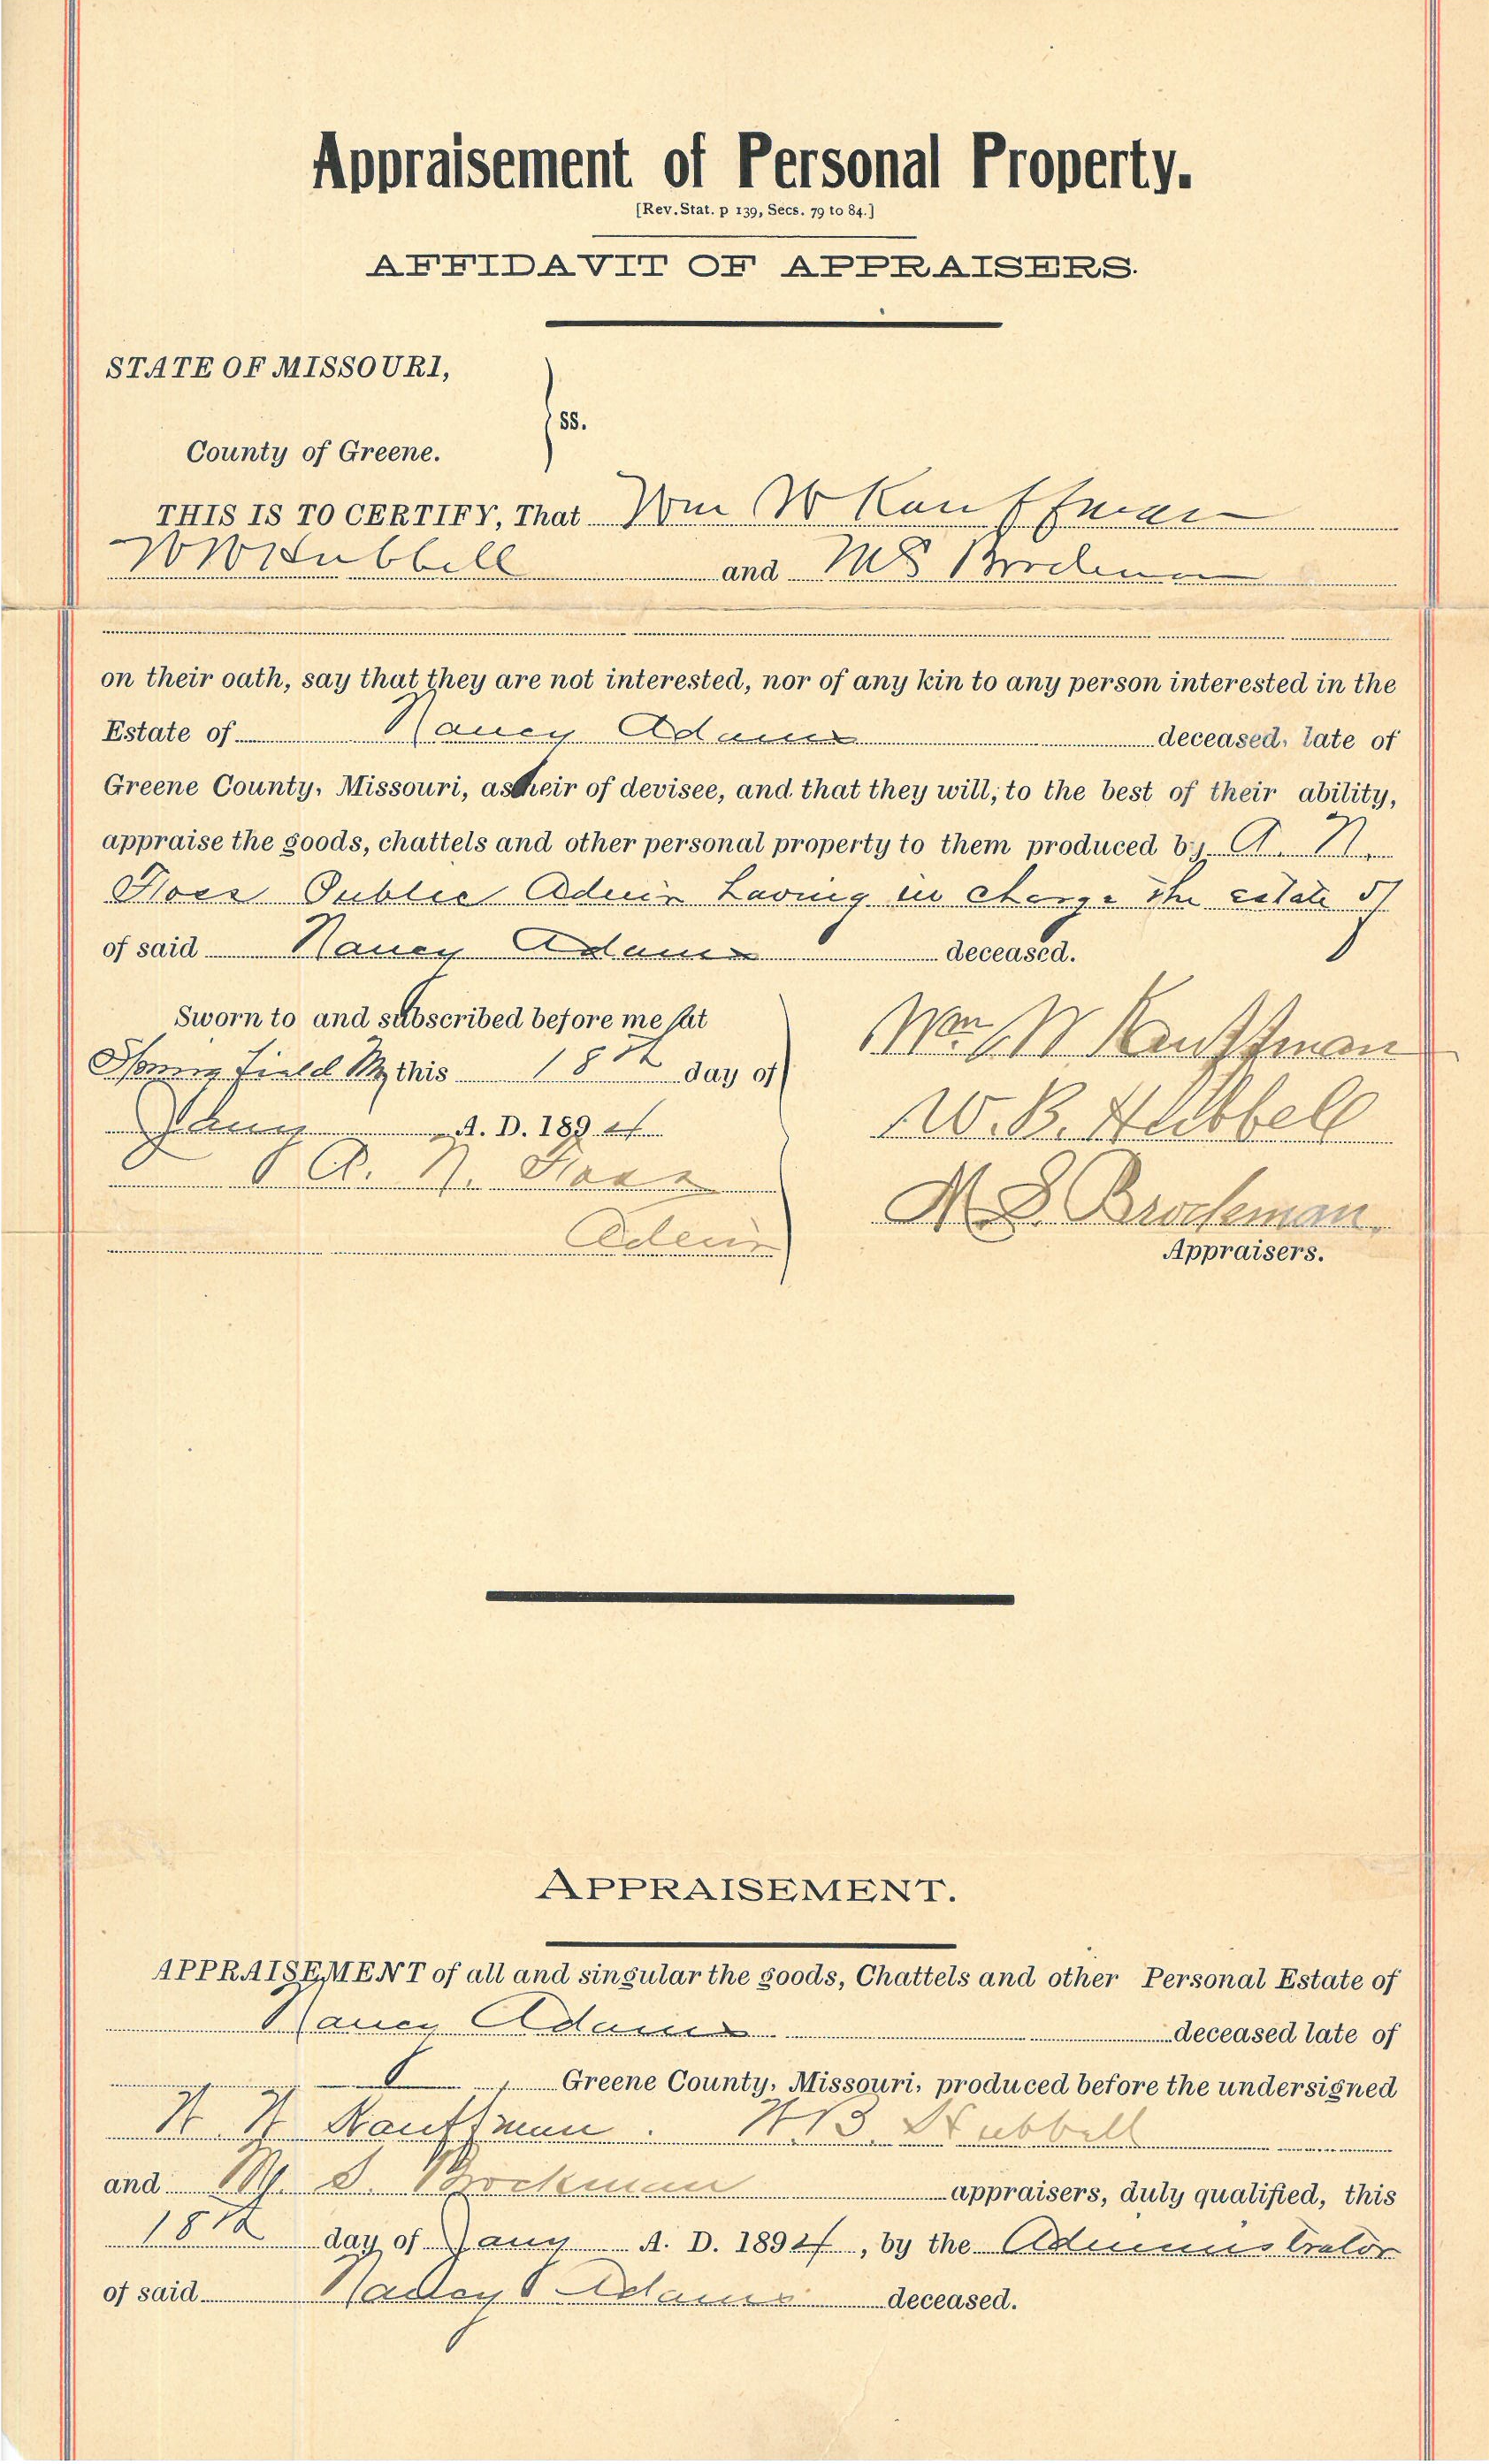 Appraisement of Personal Property.
[Rev. Stat. p 139, Secs. 79 to 84.]
AFFIDAVIT OF APPRAISERS.
STATE OF MISSOURI,
ss.
County of Greene.
THIS IS TO CERTIFY, That Wm W Kauffman
W W Hubbell and M S Brockman
on their oath, say that they are not interested, nor of any kin to any person interested in the
Estate of Nancy Adams deceased, late of
Greene County, Missouri, as heir of devisee, and that they will, to the best of their ability,
appraise the goods, chattels and other personal property to them produced by A. N.
Public Admin having in charge the estate of
of said Nancy Adams deceased.
Sworn to and subscribed before me at
Springfield Mo this 18th day of
Jany A. D. 1894
A. N.
Admin
Wm W Kauffman
W. B. Hubbell
M S. Brockman
Appraisers.
APPRAISEMENT.
APPRAISEMENT of all and singular the goods, Chattels and other Personal Estate of
Nancy Adams deceased late of
Greene County, Missouri, produced before the undersigned
W. W Kauffman. W. B. Hubbell
and M. S. Brockman appraisers, duly qualified, this
18th day of Jany A. D. 1894, by the Administrator
of said Nancy Adams deceased.